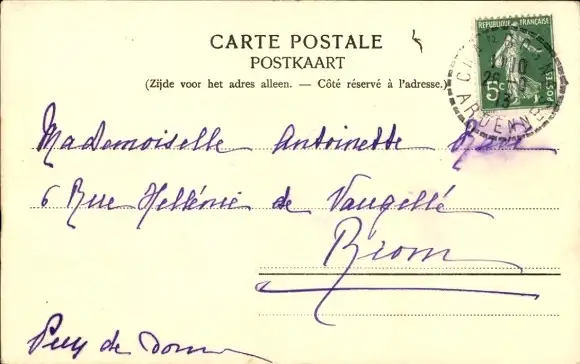 CARTE POSTALE
POSTKAART
(Zijde voor het adres alleen. — Côté réservé à l'adresse.)
RÉPUBLIQUE FRANÇAISE
5c
POSTES
ARDENNES
Mademoiselle Antoinette
6 Rue Hellénie de Vaugellé
Riom
Puy de Dome